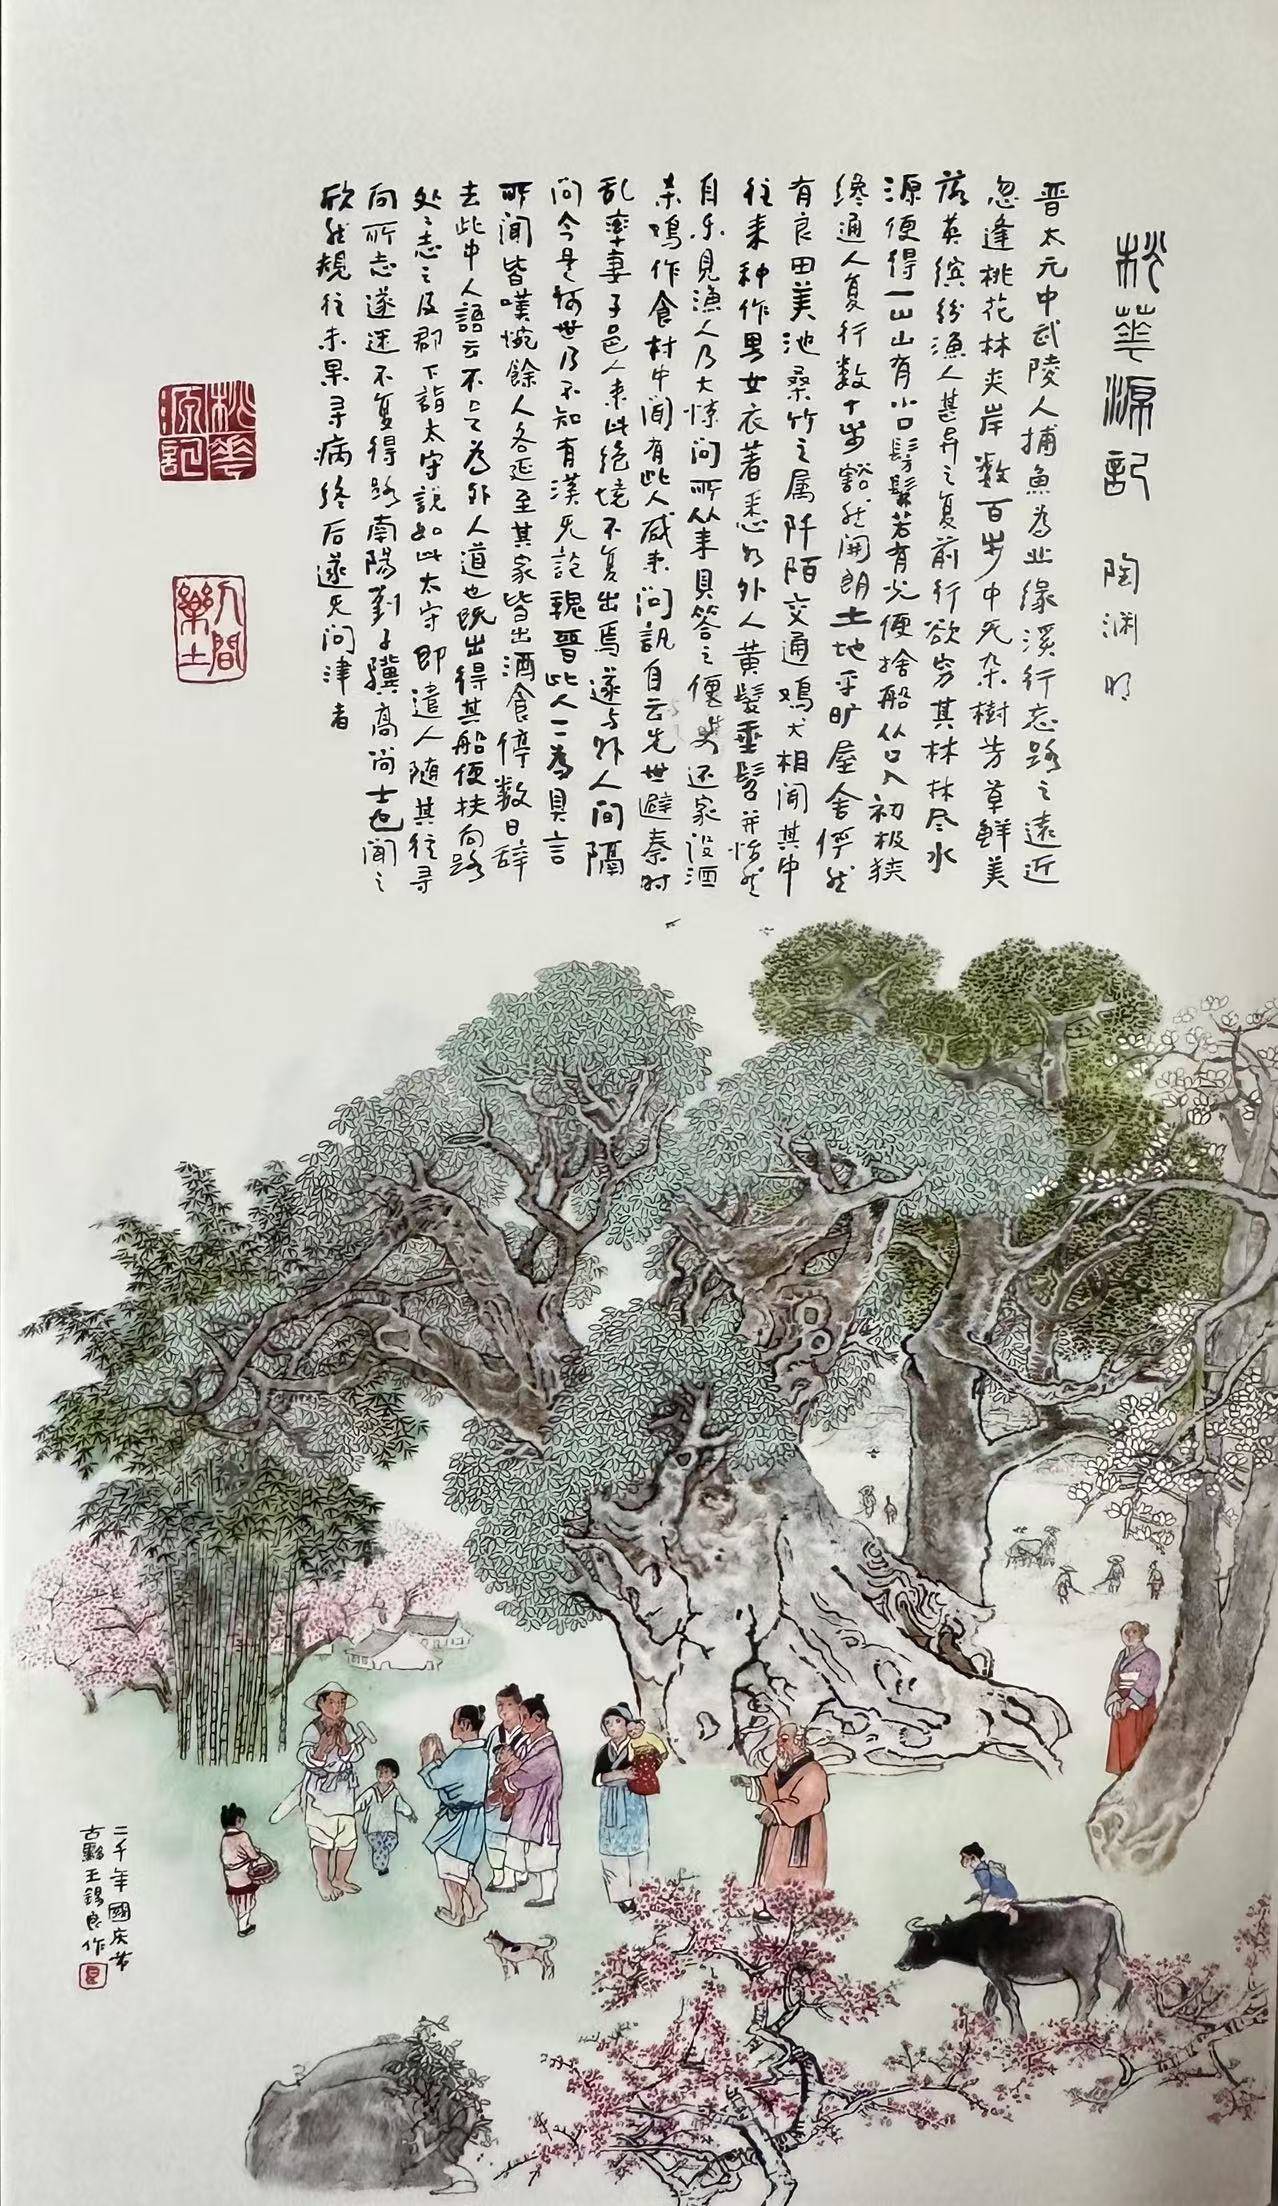 桃華源記 陶渊明
晋太元中武陵人捕魚為业缘溪行忘路之遠近
忽逢桃花林夹岸数百步中无杂樹芳草鲜美
落英缤纷漁人甚异之复前行欲穷其林林尽水
源便得一山山有小口髣髴若有光便捨船从口入初极狭
纔通人复行数十步豁然開朗土地平旷屋舍俨然
有良田美池桑竹之属阡陌交通鸡犬相闻其中
往来种作男女衣著悉如外人黄髮垂髫并怡然
自乐見漁人乃大惊问所从来具答之便要还家设酒
杀鸡作食村中闻有此人咸来问讯自云先世避秦时
乱率妻子邑人来此绝境不复出焉遂与外人间隔
问今是何世乃不知有漢无論魏晋此人一一為具言
所闻皆嘆惋餘人各延至其家皆出酒食停数日辞
去此中人語云不足為外人道也既出得其船便扶向路
处々志之及郡下詣太守説如此太守即遣人随其往寻
向所志遂迷不复得路南陽劉子驥高尚士也闻之
欣然規往未果寻病终后遂无问津者
桃華源記
人間樂土
二千年國庆节
古黟王錫良作